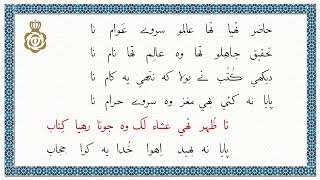 حاضر تهيا تها عالمو سروے عوام نا
حقيق جاهلو تها وه عالم تها نام نا
ديكهي كُتُب نے بولا كه نتهي يه كام نا
پايا نه كئي بهي مغز وه سروے حرام نا
تا ظُهر تهي عشاء لَگ وه جوتا رهيا كِتاب
پايا نه بهيد اِهوا خُدا يه كرا حجاب